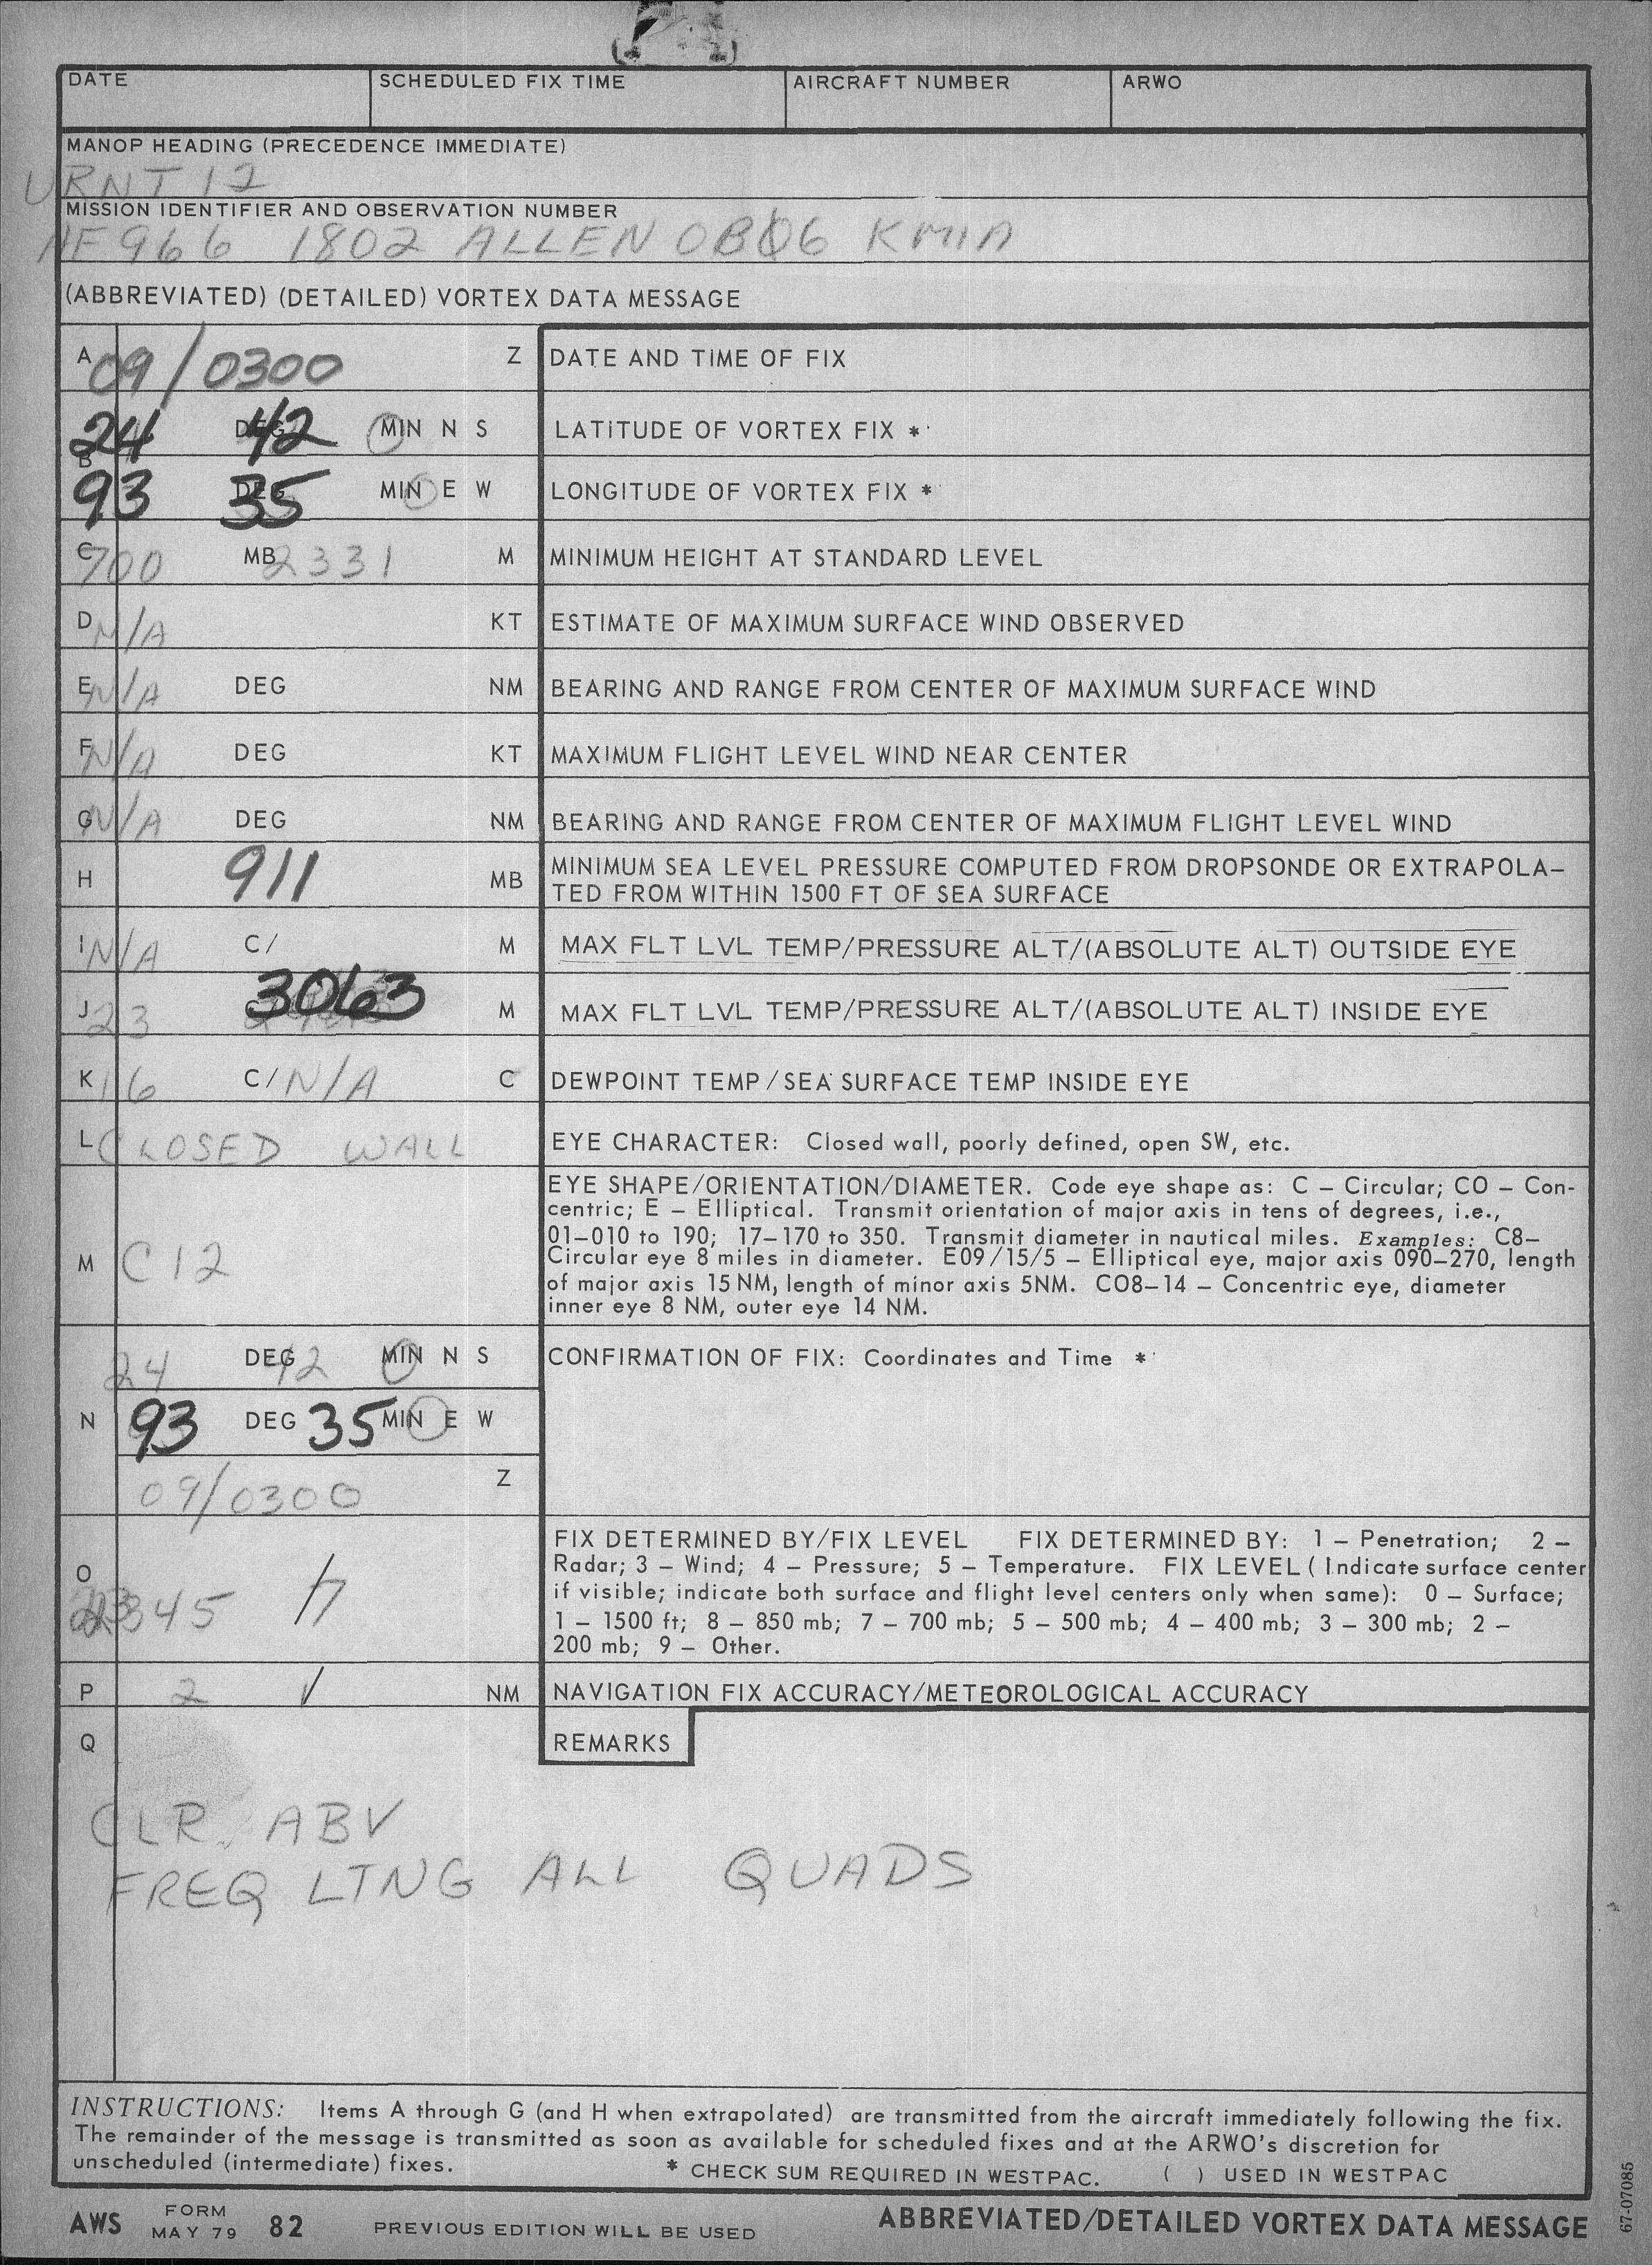 DATE SCHEDULED FIX TIME AIRCRAFT NUMBER ARWO
MANOP HEADING (PRECEDENCE IMMEDIATE)
URNT 12
MISSION IDENTIFIER AND OBSERVATION NUMBER
AF966 1802 ALLEN OB06 KMIA
(ABBREVIATED) (DETAILED) VORTEX DATA MESSAGE
A 09/0300 Z DATE AND TIME OF FIX
24 DEG 42 MIN N S LATITUDE OF VORTEX FIX *
B
93 DEG 35 MIN E W LONGITUDE OF VORTEX FIX *
C 700 MB 2331 M MINIMUM HEIGHT AT STANDARD LEVEL
D N/A KT ESTIMATE OF MAXIMUM SURFACE WIND OBSERVED
E N/A DEG NM BEARING AND RANGE FROM CENTER OF MAXIMUM SURFACE WIND
F N/A DEG KT MAXIMUM FLIGHT LEVEL WIND NEAR CENTER
G N/A DEG NM BEARING AND RANGE FROM CENTER OF MAXIMUM FLIGHT LEVEL WIND
H 911 MB MINIMUM SEA LEVEL PRESSURE COMPUTED FROM DROPSONDE OR EXTRAPOLA–
TED FROM WITHIN 1500 FT OF SEA SURFACE
I N/A C/ M MAX FLT LVL TEMP/PRESSURE ALT/(ABSOLUTE ALT) OUTSIDE EYE
J 23 3063 M MAX FLT LVL TEMP/PRESSURE ALT/(ABSOLUTE ALT) INSIDE EYE
K 16 C/ N/A C DEWPOINT TEMP/SEA SURFACE TEMP INSIDE EYE
L CLOSED WALL EYE CHARACTER: Closed wall, poorly defined, open SW, etc.
M C12 EYE SHAPE/ORIENTATION/DIAMETER. Code eye shape as: C – Circular; CO – Con-
centric; E – Elliptical. Transmit orientation of major axis in tens of degrees, i.e.,
01–010 to 190; 17–170 to 350. Transmit diameter in nautical miles. Examples: C8–
Circular eye 8 miles in diameter. E09/15/5 – Elliptical eye, major axis 090–270, length
of major axis 15 NM, length of minor axis 5NM. CO8–14 – Concentric eye, diameter
inner eye 8 NM, outer eye 14 NM.
24 DEG 42 MIN N S CONFIRMATION OF FIX: Coordinates and Time *
N 93 DEG 35 MIN E W
09/0300 Z
O 345 / FIX DETERMINED BY/FIX LEVEL FIX DETERMINED BY: 1 – Penetration; 2 –
Radar; 3 – Wind; 4 – Pressure; 5 – Temperature. FIX LEVEL ( Indicate surface center
if visible; indicate both surface and flight level centers only when same): 0 – Surface;
1 – 1500 ft; 8 – 850 mb; 7 – 700 mb; 5 – 500 mb; 4 – 400 mb; 3 – 300 mb; 2 –
200 mb; 9 – Other.
P 2 / NM NAVIGATION FIX ACCURACY/METEOROLOGICAL ACCURACY
Q REMARKS
CLR ABV
FREQ LTNG ALL QUADS
INSTRUCTIONS: Items A through G (and H when extrapolated) are transmitted from the aircraft immediately following the fix.
The remainder of the message is transmitted as soon as available for scheduled fixes and at the ARWO's discretion for
unscheduled (intermediate) fixes. * CHECK SUM REQUIRED IN WESTPAC. ( ) USED IN WESTPAC
AWS FORM MAY 79 82 PREVIOUS EDITION WILL BE USED ABBREVIATED/DETAILED VORTEX DATA MESSAGE
67-07085